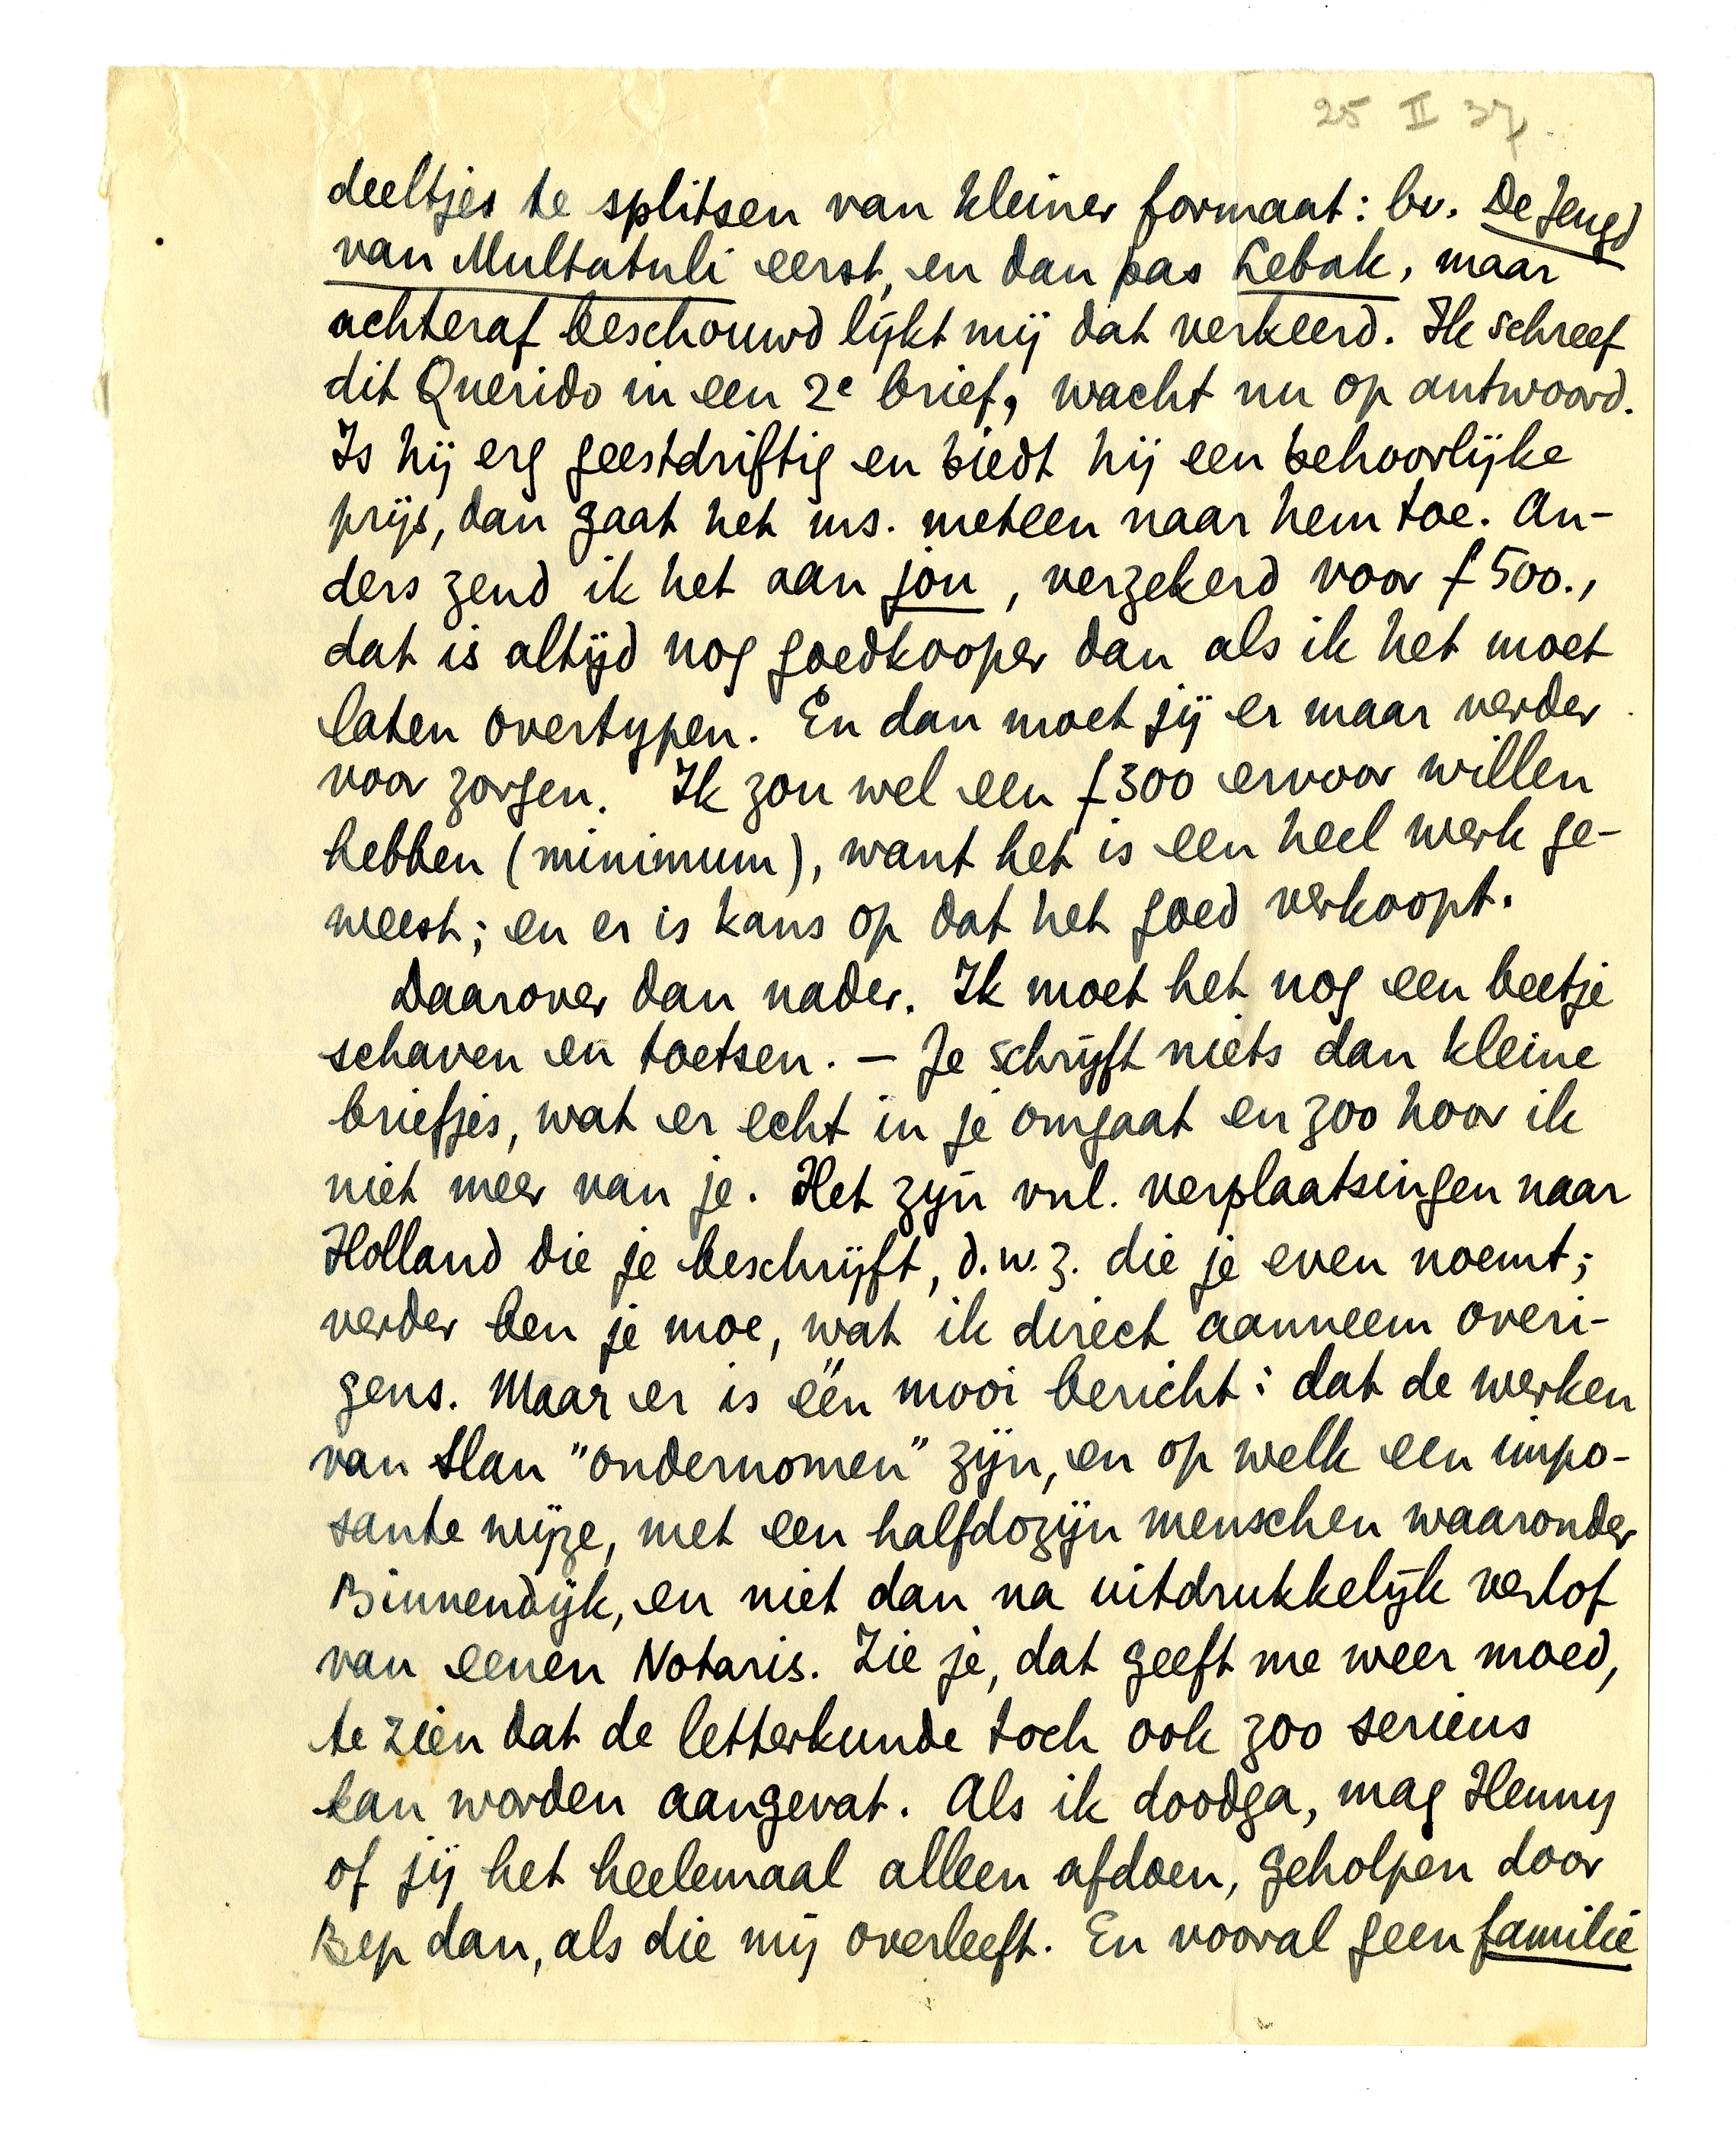 25 II 37.
deeltjes te splitsen van kleiner formaat: bv. De Jeugd
van Multatuli eerst, en dan pas Lebak, maar
achteraf beschouwd lijkt mij dat verkeerd. Ik schreef
dit Querido in een 2e brief, wacht nu op antwoord.
Is hij erg geestdriftig en biedt hij een behoorlijke
prijs, dan gaat het ms. meteen naar hem toe. An-
ders zend ik het aan jou, verzekerd voor f 500.,
dat is altijd nog goedkooper dan als ik het moet
laten overtypen. En dan moet jij er maar verder
voor zorgen. Ik zou wel een f 300 ervoor willen
hebben (minimum), want het is een heel werk ge-
weest; en er is kans op dat het goed verkoopt.
Daarover dan nader. Ik moet het nog een beetje
schaven en toetsen. — Je schrijft niets dan kleine
briefjes, wat er echt in je omgaat en zoo hoor ik
niet meer van je. Het zijn vnl. verplaatsingen naar
Holland die je beschrijft, d.w.z. die je even noemt;
verder ben je moe, wat ik direct aanneem overi-
gens. Maar er is één mooi bericht: dat de werken
van Slau "ondernomen" zijn, en op welk een impo-
sante wijze, met een halfdozijn menschen waaronder
Binnendijk, en niet dan na uitdrukkelijk verlof
van eenen Notaris. Zie je, dat geeft me weer moed,
te zien dat de letterkunde toch ook zoo serieus
kan worden aangevat. Als ik doodga, mag Henny
of jij het heelemaal alleen afdoen, geholpen door
Bep dan, als die mij overleeft. En vooral geen familie